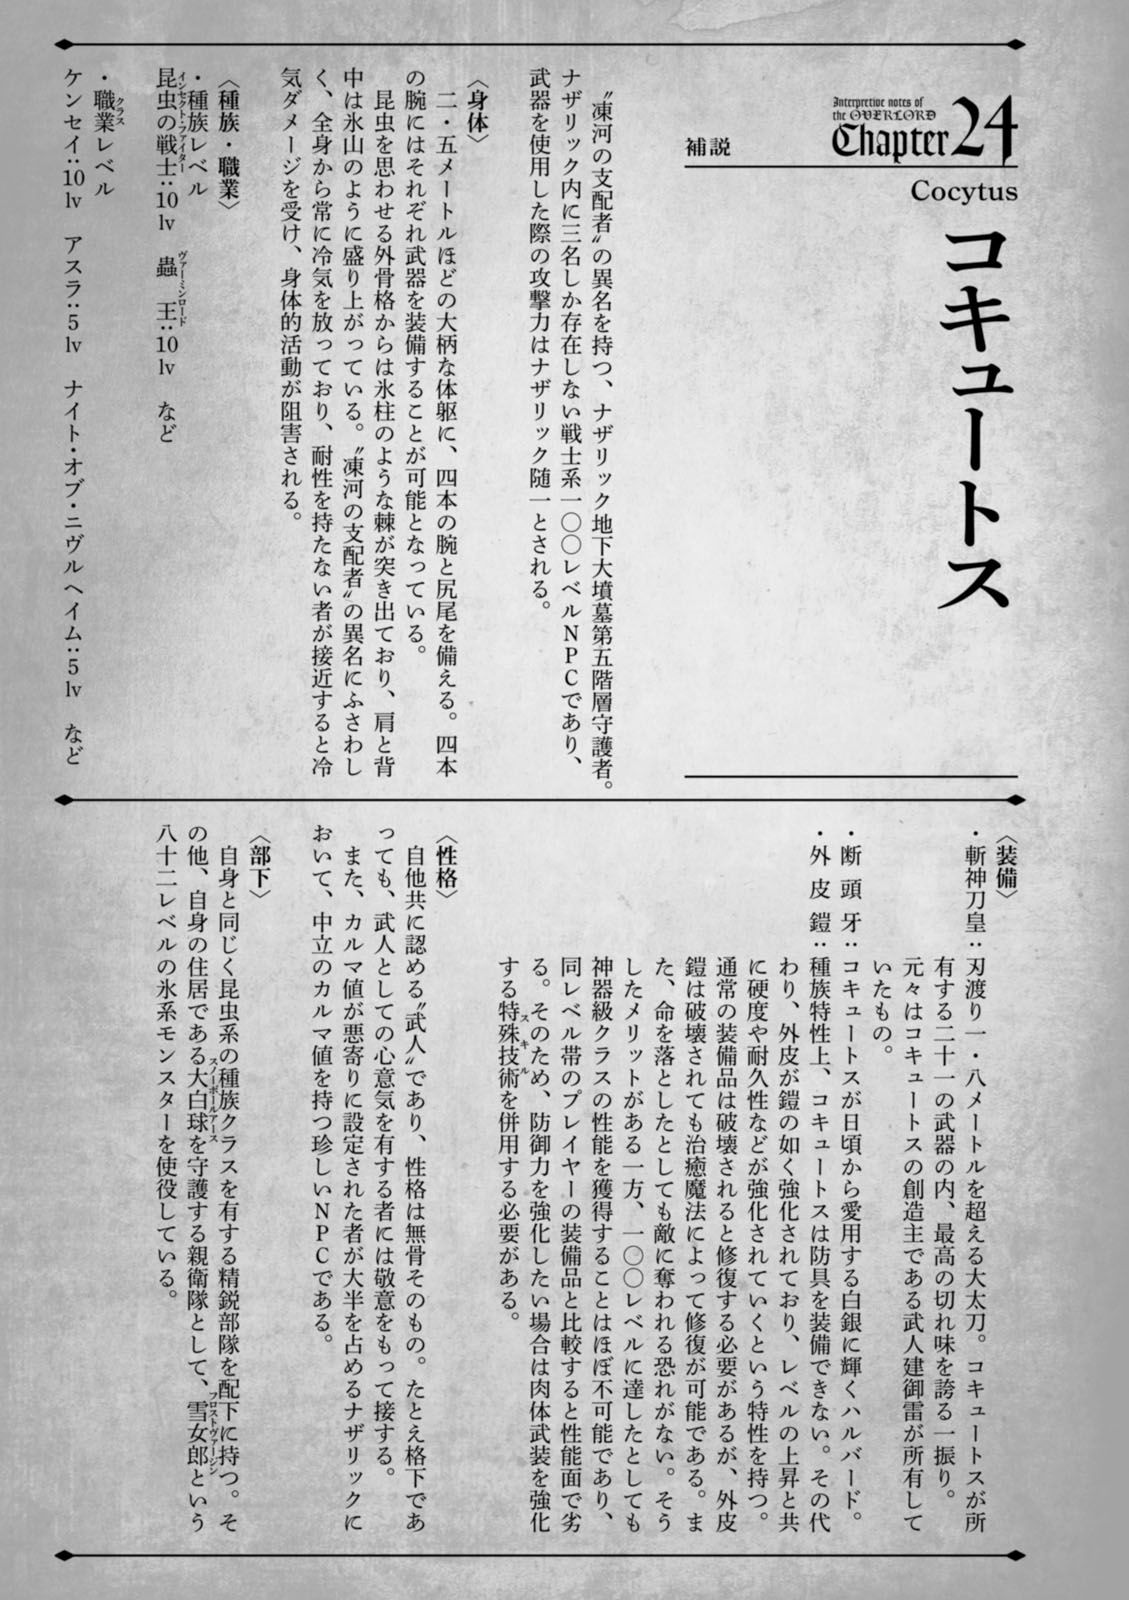 Interpretive notes of
the OVERLORD
Chapter 24
補説
Cocytus
コキュートス
〝凍河の支配者〟の異名を持つ、ナザリック地下大墳墓第五階層守護者。
ナザリック内に三名しか存在しない戦士系一〇〇レベルNPCであり、
武器を使用した際の攻撃力はナザリック随一とされる。
〈身体〉
二・五メートルほどの大柄な体躯に、四本の腕と尻尾を備える。四本
の腕にはそれぞれ武器を装備することが可能となっている。
昆虫を思わせる外骨格からは氷柱のような棘が突き出ており、肩と背
中は氷山のように盛り上がっている。〝凍河の支配者〟の異名にふさわし
く、全身から常に冷気を放っており、耐性を持たない者が接近すると冷
気ダメージを受け、身体的活動が阻害される。
〈種族・職業〉
・種族レベル
昆虫の戦士インセクト・ファイター：10lv　蟲王ヴァーミンロード：10lv　など
・職業クラスレベル
ケンセイ：10lv　アスラ：5lv　ナイト・オブ・ニヴルヘイム：5lv　など
〈装備〉
・斬神刀皇：刃渡り一・八メートルを超える大太刀。コキュートスが所
有する二十一の武器の内、最高の切れ味を誇る一振り。
元々はコキュートスの創造主である武人建御雷が所有して
いたもの。
・断頭牙：コキュートスが日頃から愛用する白銀に輝くハルバード。
・外皮鎧：種族特性上、コキュートスは防具を装備できない。その代
わり、外皮が鎧の如く強化されており、レベルの上昇と共
に硬度や耐久性などが強化されていくという特性を持つ。
通常の装備品は破壊されると修復する必要があるが、外皮
鎧は破壊されても治癒魔法によって修復が可能である。ま
た、命を落としたとしても敵に奪われる恐れがない。そう
したメリットがある一方、一〇〇レベルに達したとしても
神器級クラスの性能を獲得することはほぼ不可能であり、
同レベル帯のプレイヤーの装備品と比較すると性能面で劣
る。そのため、防御力を強化したい場合は肉体武装を強化
する特殊技術スキルを併用する必要がある。
〈性格〉
自他共に認める〝武人〟であり、性格は無骨そのもの。たとえ格下であ
っても、武人としての心意気を有する者には敬意をもって接する。
また、カルマ値が悪寄りに設定された者が大半を占めるナザリックに
おいて、中立のカルマ値を持つ珍しいNPCである。
〈部下〉
自身と同じく昆虫系の種族クラスを有する精鋭部隊を配下に持つ。そ
の他、自身の住居である大白球スノーボールアースを守護する親衛隊として、雪女郎フロストヴァージンという
八十二レベルの氷系モンスターを使役している。